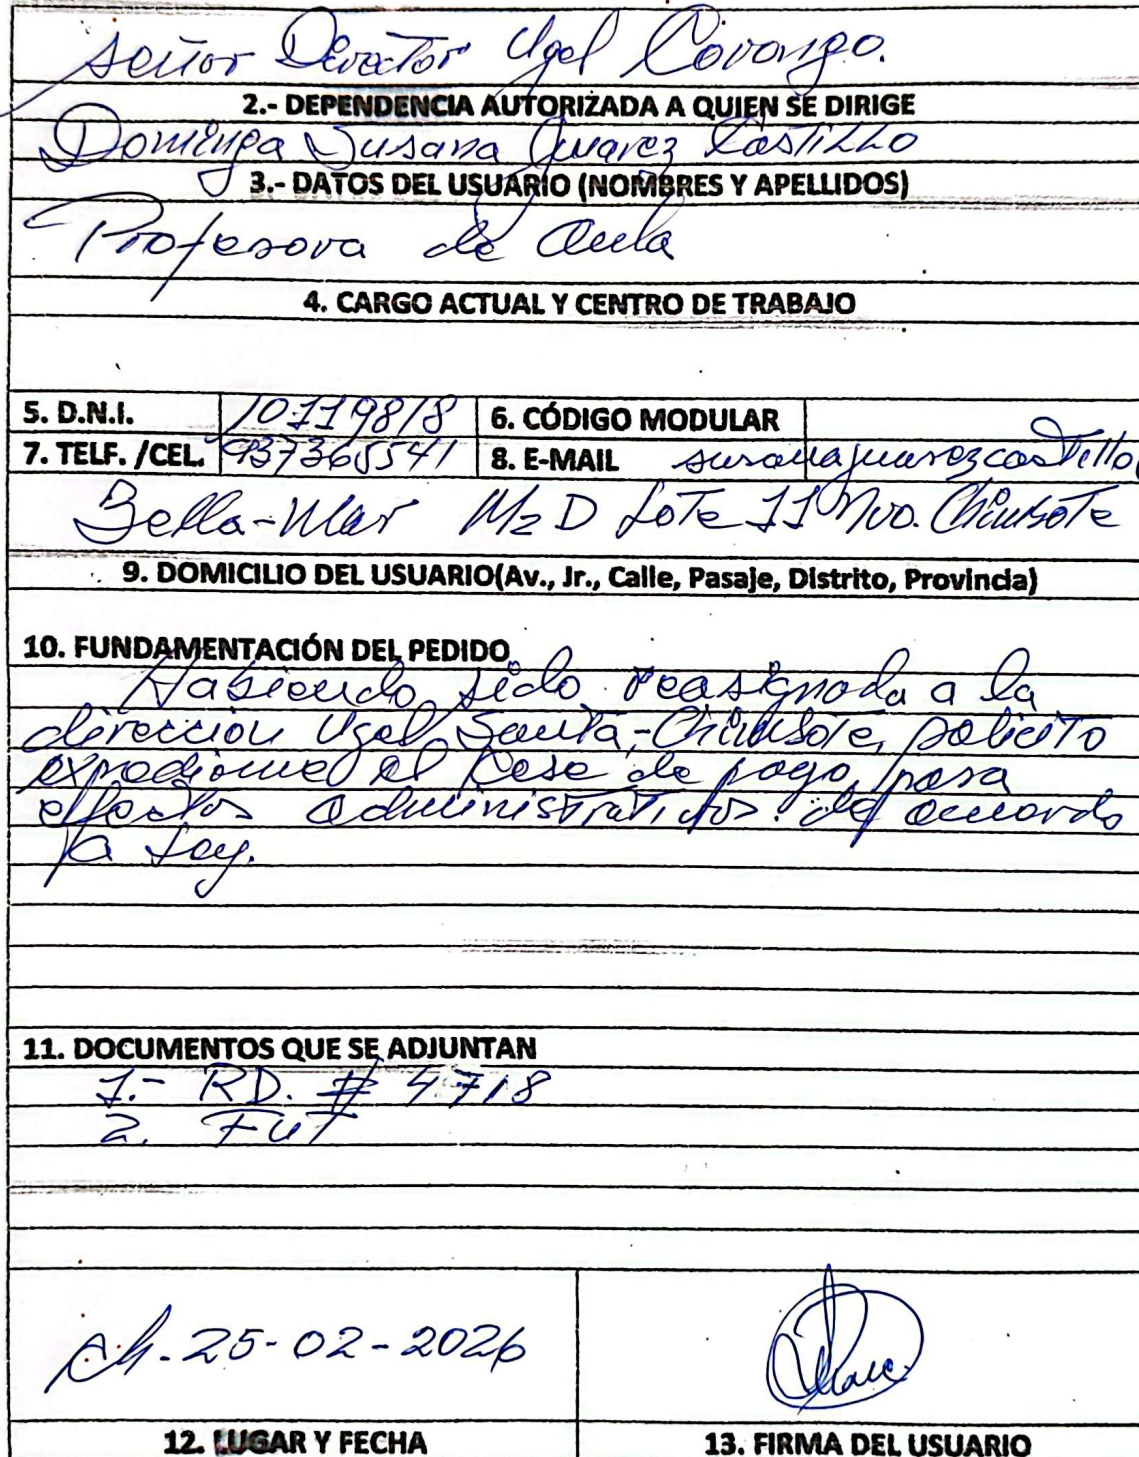 Señor Director Ugel Corongo.
2.- DEPENDENCIA AUTORIZADA A QUIEN SE DIRIGE
Dominga Susana Juarez Castillo
3.- DATOS DEL USUARIO (NOMBRES Y APELLIDOS)
Profesora de Aula
4. CARGO ACTUAL Y CENTRO DE TRABAJO
5. D.N.I. 10119818 6. CÓDIGO MODULAR
7. TELF. /CEL. 937365541 8. E-MAIL susanajuarezcastillo
Bella-Mar Mz D Lote 11 Nvo. Chimbote
9. DOMICILIO DEL USUARIO(Av., Jr., Calle, Pasaje, Distrito, Provincia)
10. FUNDAMENTACIÓN DEL PEDIDO
Habiendo sido reasignada a la
dirección Ugel Santa-Chimbote, solicito
expedirme el cese de pago, para
efectos administrativos. de acuerdo
a Ley.
11. DOCUMENTOS QUE SE ADJUNTAN
1.- RD. # 4718
2. FUT
Ch. 25-02-2026
12. LUGAR Y FECHA 13. FIRMA DEL USUARIO